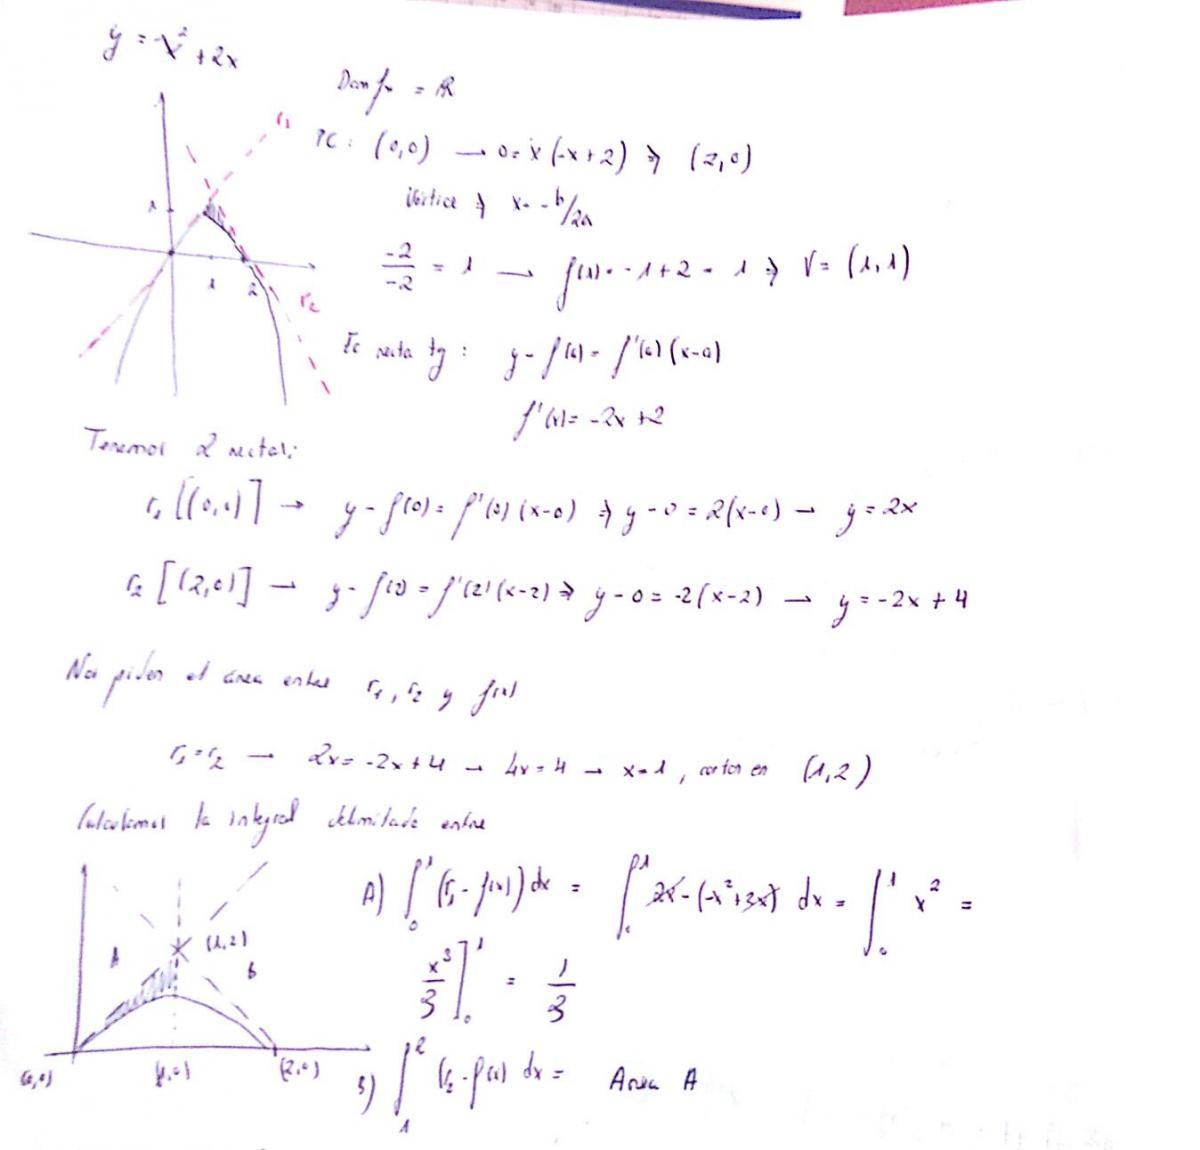 y = -x² + 2x
Dom f = ℝ
PC: (0,0) → 0 = x(-x+2) ⇒ (2,0)
Vértice ⇒ x = -b/2a
-2/-2 = 1 → f(1) = -1+2 = 1 ⇒ V = (1,1)
r₁
1
1 2
r₂
Ec recta tg: y - f(a) = f'(a)(x-a)
f'(x) = -2x +2
Tenemos 2 rectas:
r₁ [(0,0)] → y - f(0) = f'(0)(x-0) ⇒ y - 0 = 2(x-0) → y = 2x
r₂ [(2,0)] → y - f(2) = f'(2)(x-2) ⇒ y - 0 = -2(x-2) → y = -2x + 4
Nos piden el área entre r₁, r₂ y f(x)
r₁ = r₂ → 2x = -2x + 4 → 4x = 4 → x = 1, cortan en (1,2)
Calculamos la integral delimitada entre
A) ∫₀¹ (r₁ - f(x)) dx = ∫₀¹ 2x - (-x²+2x) dx = ∫₀¹ x² =
x³/3 ]₀¹ = 1/3
A (1,2) B
(0,0) (1,0) (2,0)
B) ∫₁² (r₂ - f(x) dx = Area A